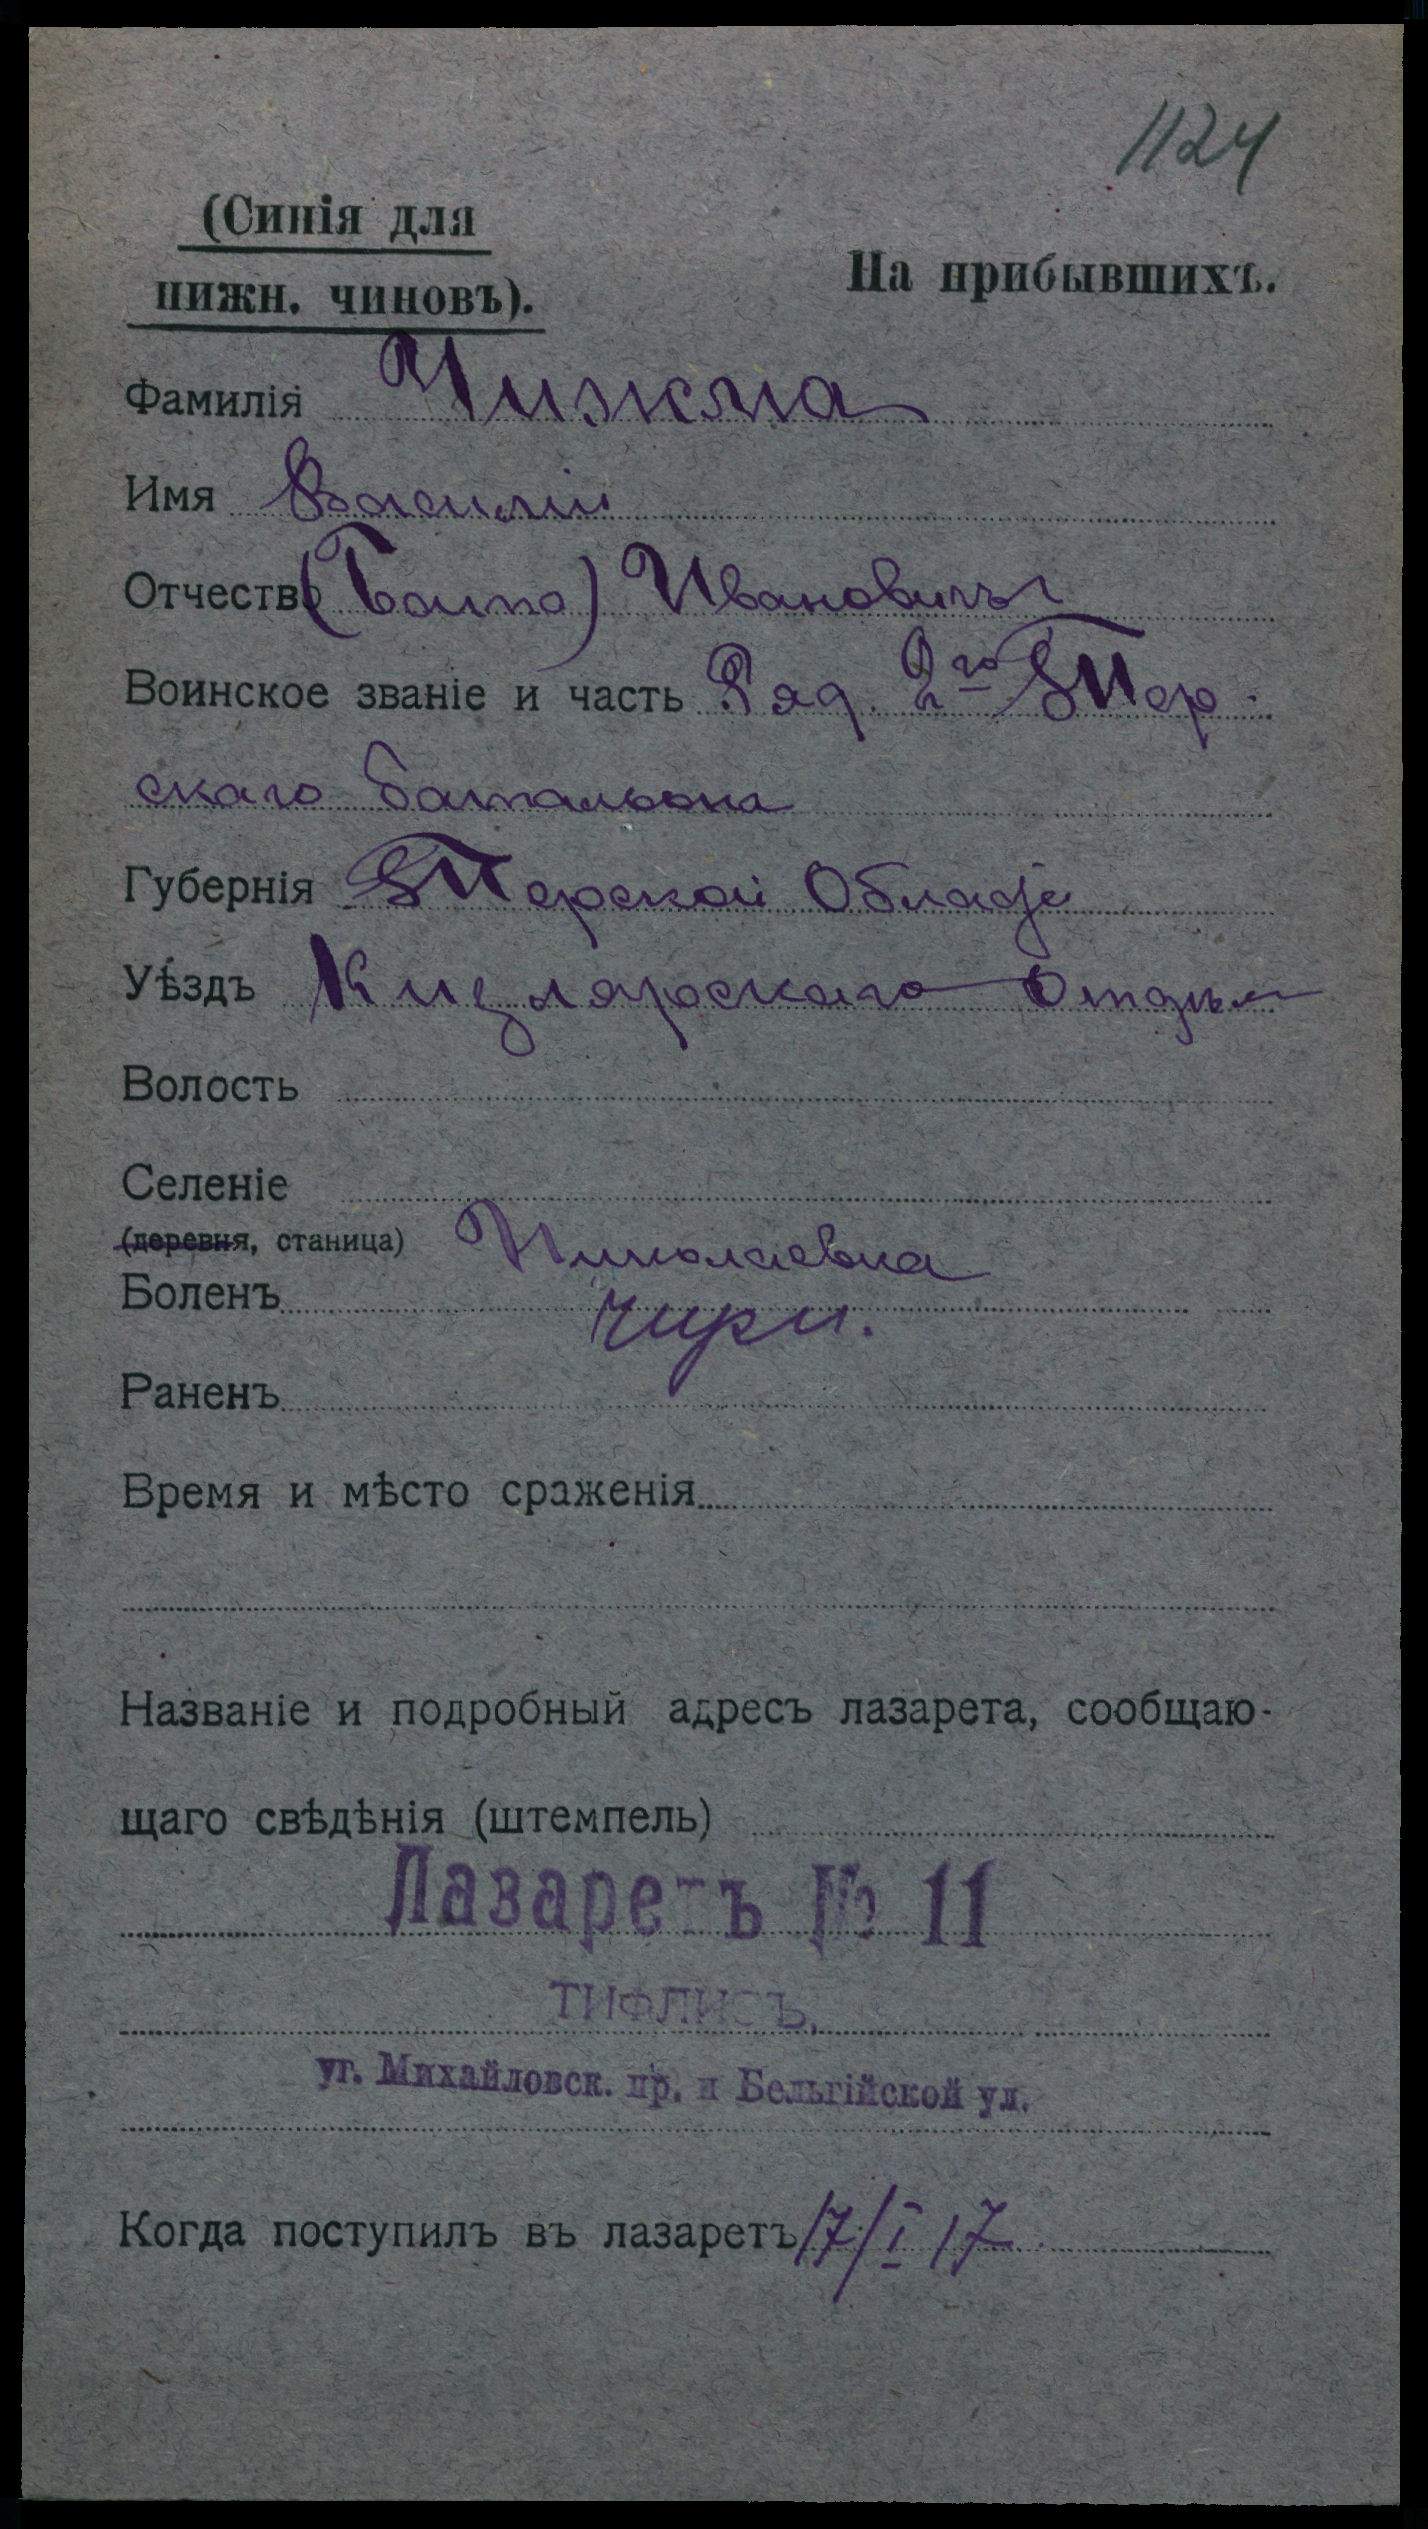 1124
(Синія для
нижн. чиновъ).
На прибывшихъ.
Фамилія Чижма
Имя Василій
Отчество (Батьо) Ивановичъ
Воинское званіе и часть Ряд. 2го Тер-
скаго баталіона
Губернія Терской Области
Уѣздъ Кизлярскаго Отдѣла
Волость
Селеніе
(деревня, станица) Николаевка
Боленъ чири.
Раненъ
Время и мѣсто сраженія
Названіе и подробный адресъ лазарета, сообщаю-
щаго свѣдѣнія (штемпель)
Лазаретъ № 11
ТИФЛИСЪ,
уг. Михайловск. пр. и Бельгійской ул.
Когда поступилъ въ лазаретъ 17/I 17